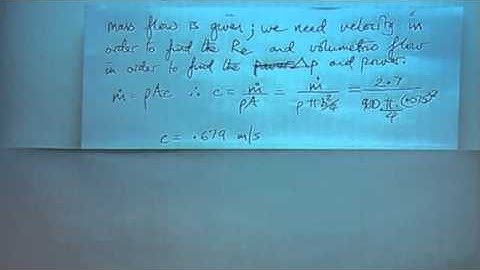 mass flow is given; we need velocity in
order to find the Re and volumetric flow
in order to find the power Δp and power.
ṁ = ρAc ∴ c = ṁ/ρA = ṁ/ρπD²/4 = 2.7/910 π/4 (.075)²
c = .679 m/s